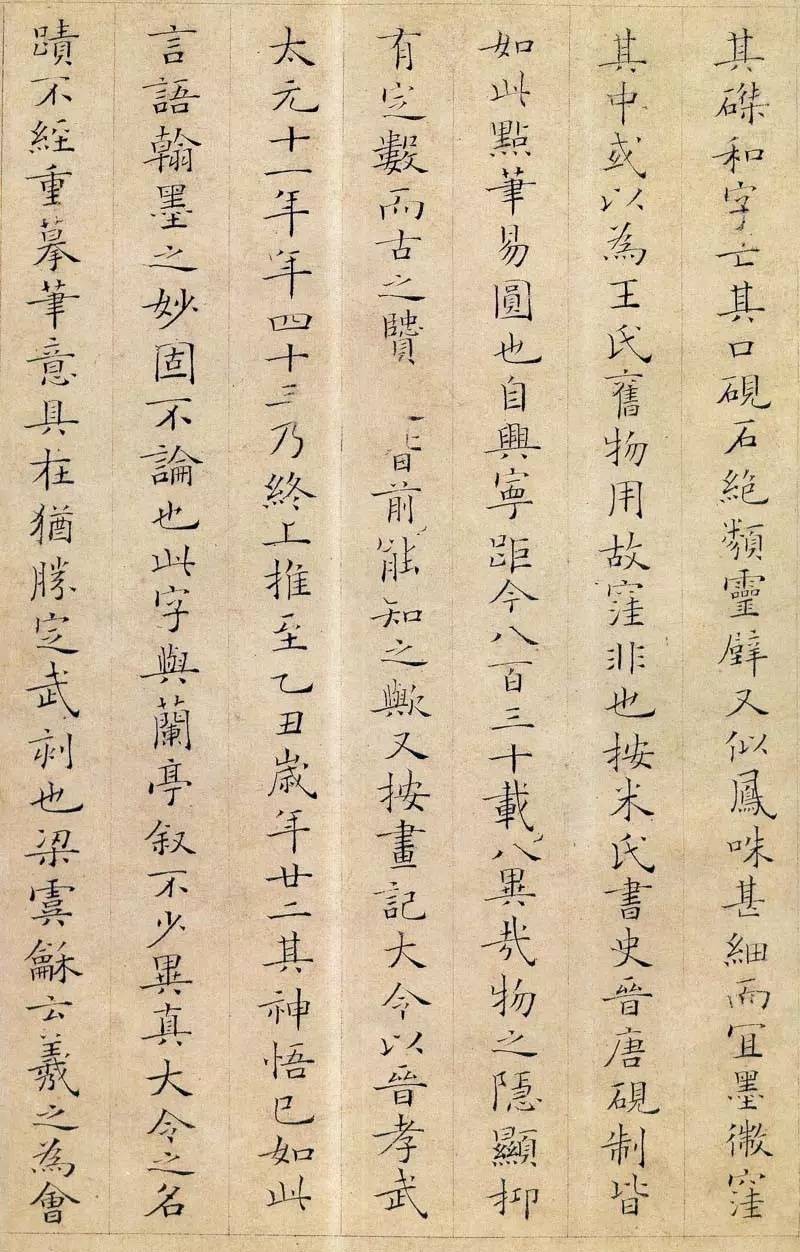 其磔和字亡其口硯石絶類靈壁又似鳳咮甚細而宜墨微窪
其中或以為王氏舊物用故窪非也按米氏書史晉唐硯制皆
如此點筆易圓也自興寧距今八百三十載八異哉物之隱顯抑
有定數而古之贒前能知之歟又按畫記大令以晉孝武
太元十一年年四十三乃終上推至乙丑歲年廿二其神悟已如此
言語翰墨之妙固不論也此字與蘭亭叙不少異真大令之名
蹟不經重摹筆意具在猶勝定武刻也梁虞龢云羲之為會